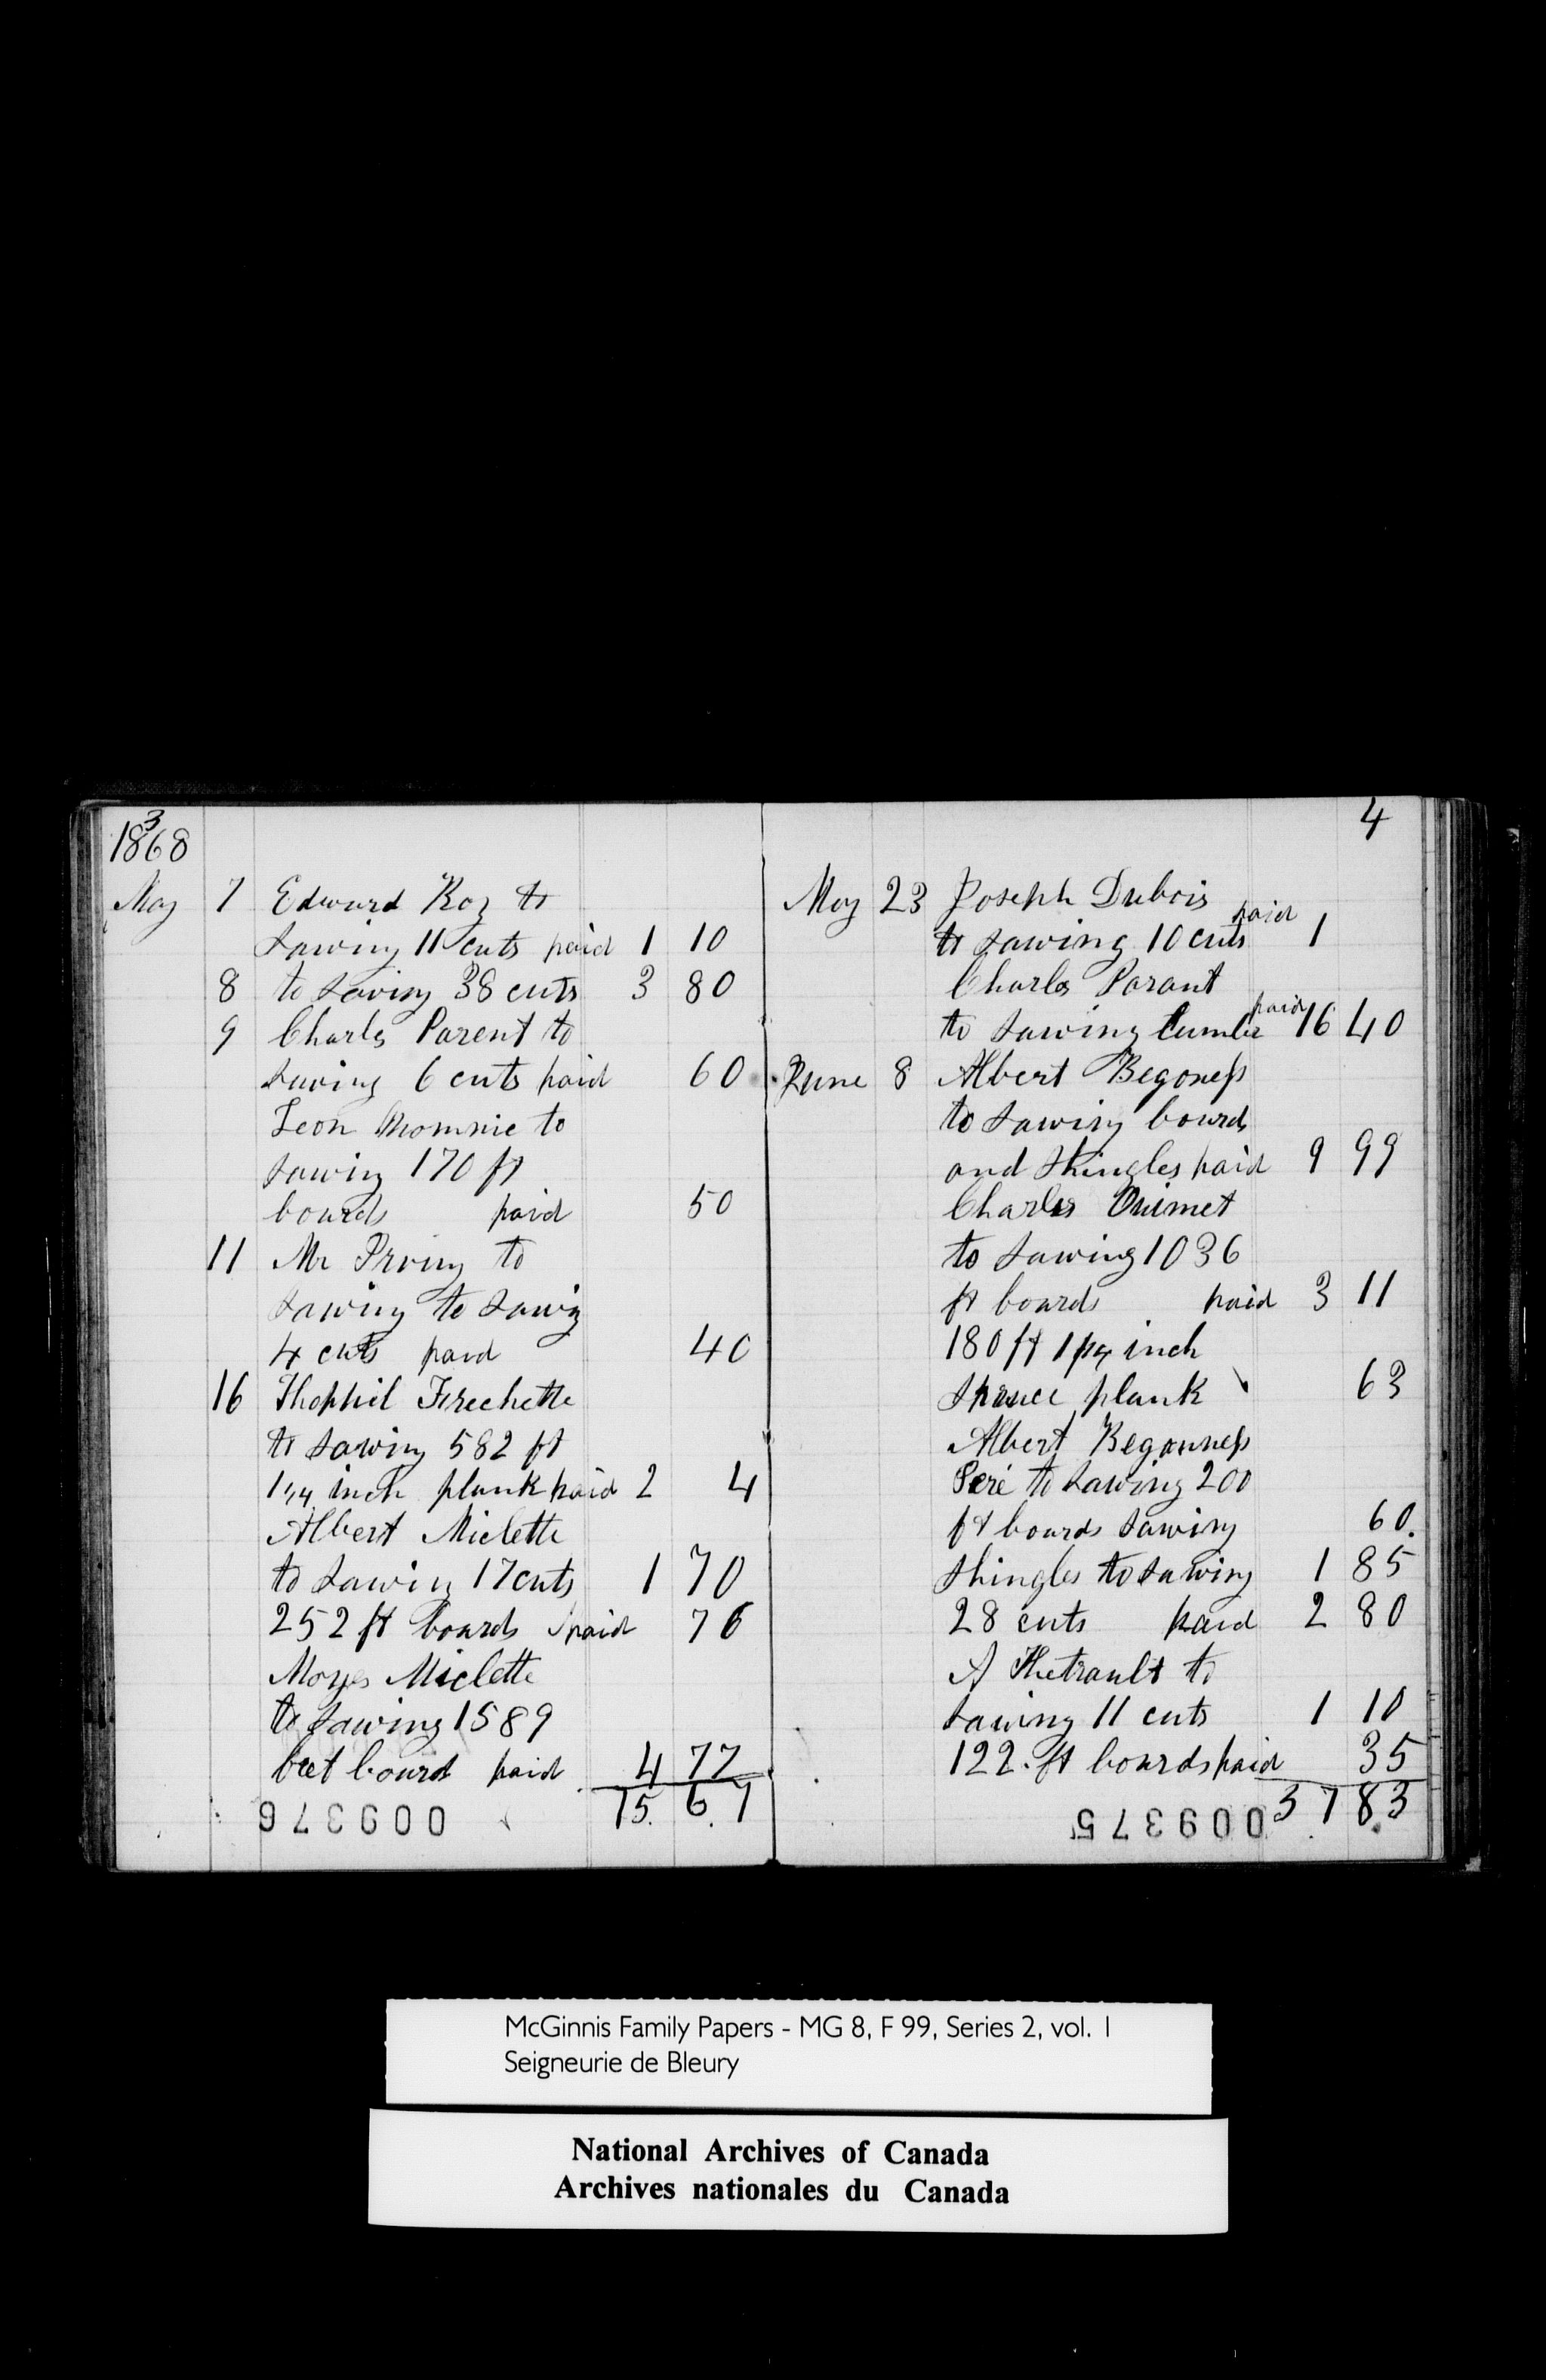 3
1868
May 7 Edward Roy to
sawing 11 cuts paid 1 10
8 to sawing 38 cuts 3 80
9 Charls Parent to
sawing 6 cuts paid 60
Leon to
sawing 170 ft
boards paid 50
11 Mr to
sawing to sawig
4 cuts paid 40
16 Thophil Frechette
to sawing 582 ft
1 1/4 inch plank paid 2 4
Albert Miclette
to sawing 17 cuts 1 70
252 ft boards paid 76
Moyes Miclette
to sawing 1589
feet board paid 4 77
15. 6.7
009376
4
May 23 Joseph Dubois
to sawing 10 cuts paid 1
Charles Parant
to sawing lumber paid 16 40
June 8 Albert Begoness
to sawing bourds
and shingles paid 9 99
Charles Ouimet
to sawing 1036
ft boards paid 3 11
180 ft 1 1/4 inch
spruce plank 63
Albert Begonness
Peré to sawing 200
ft boards sawing 60.
shingles to sawing 1 85
28 cuts paid 2 80
A Thetrault to
sawing 11 cuts 1 10
122. ft boards paid 35
37 83
009375
McGinnis Family Papers - MG 8, F 99, Series 2, vol. 1
Seigneurie de Bleury
National Archives of Canada
Archives nationales du Canada